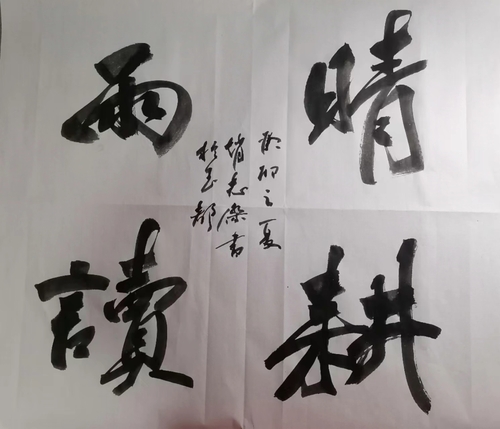 晴耕
雨讀
癸卯之夏
志傑書
於玉都